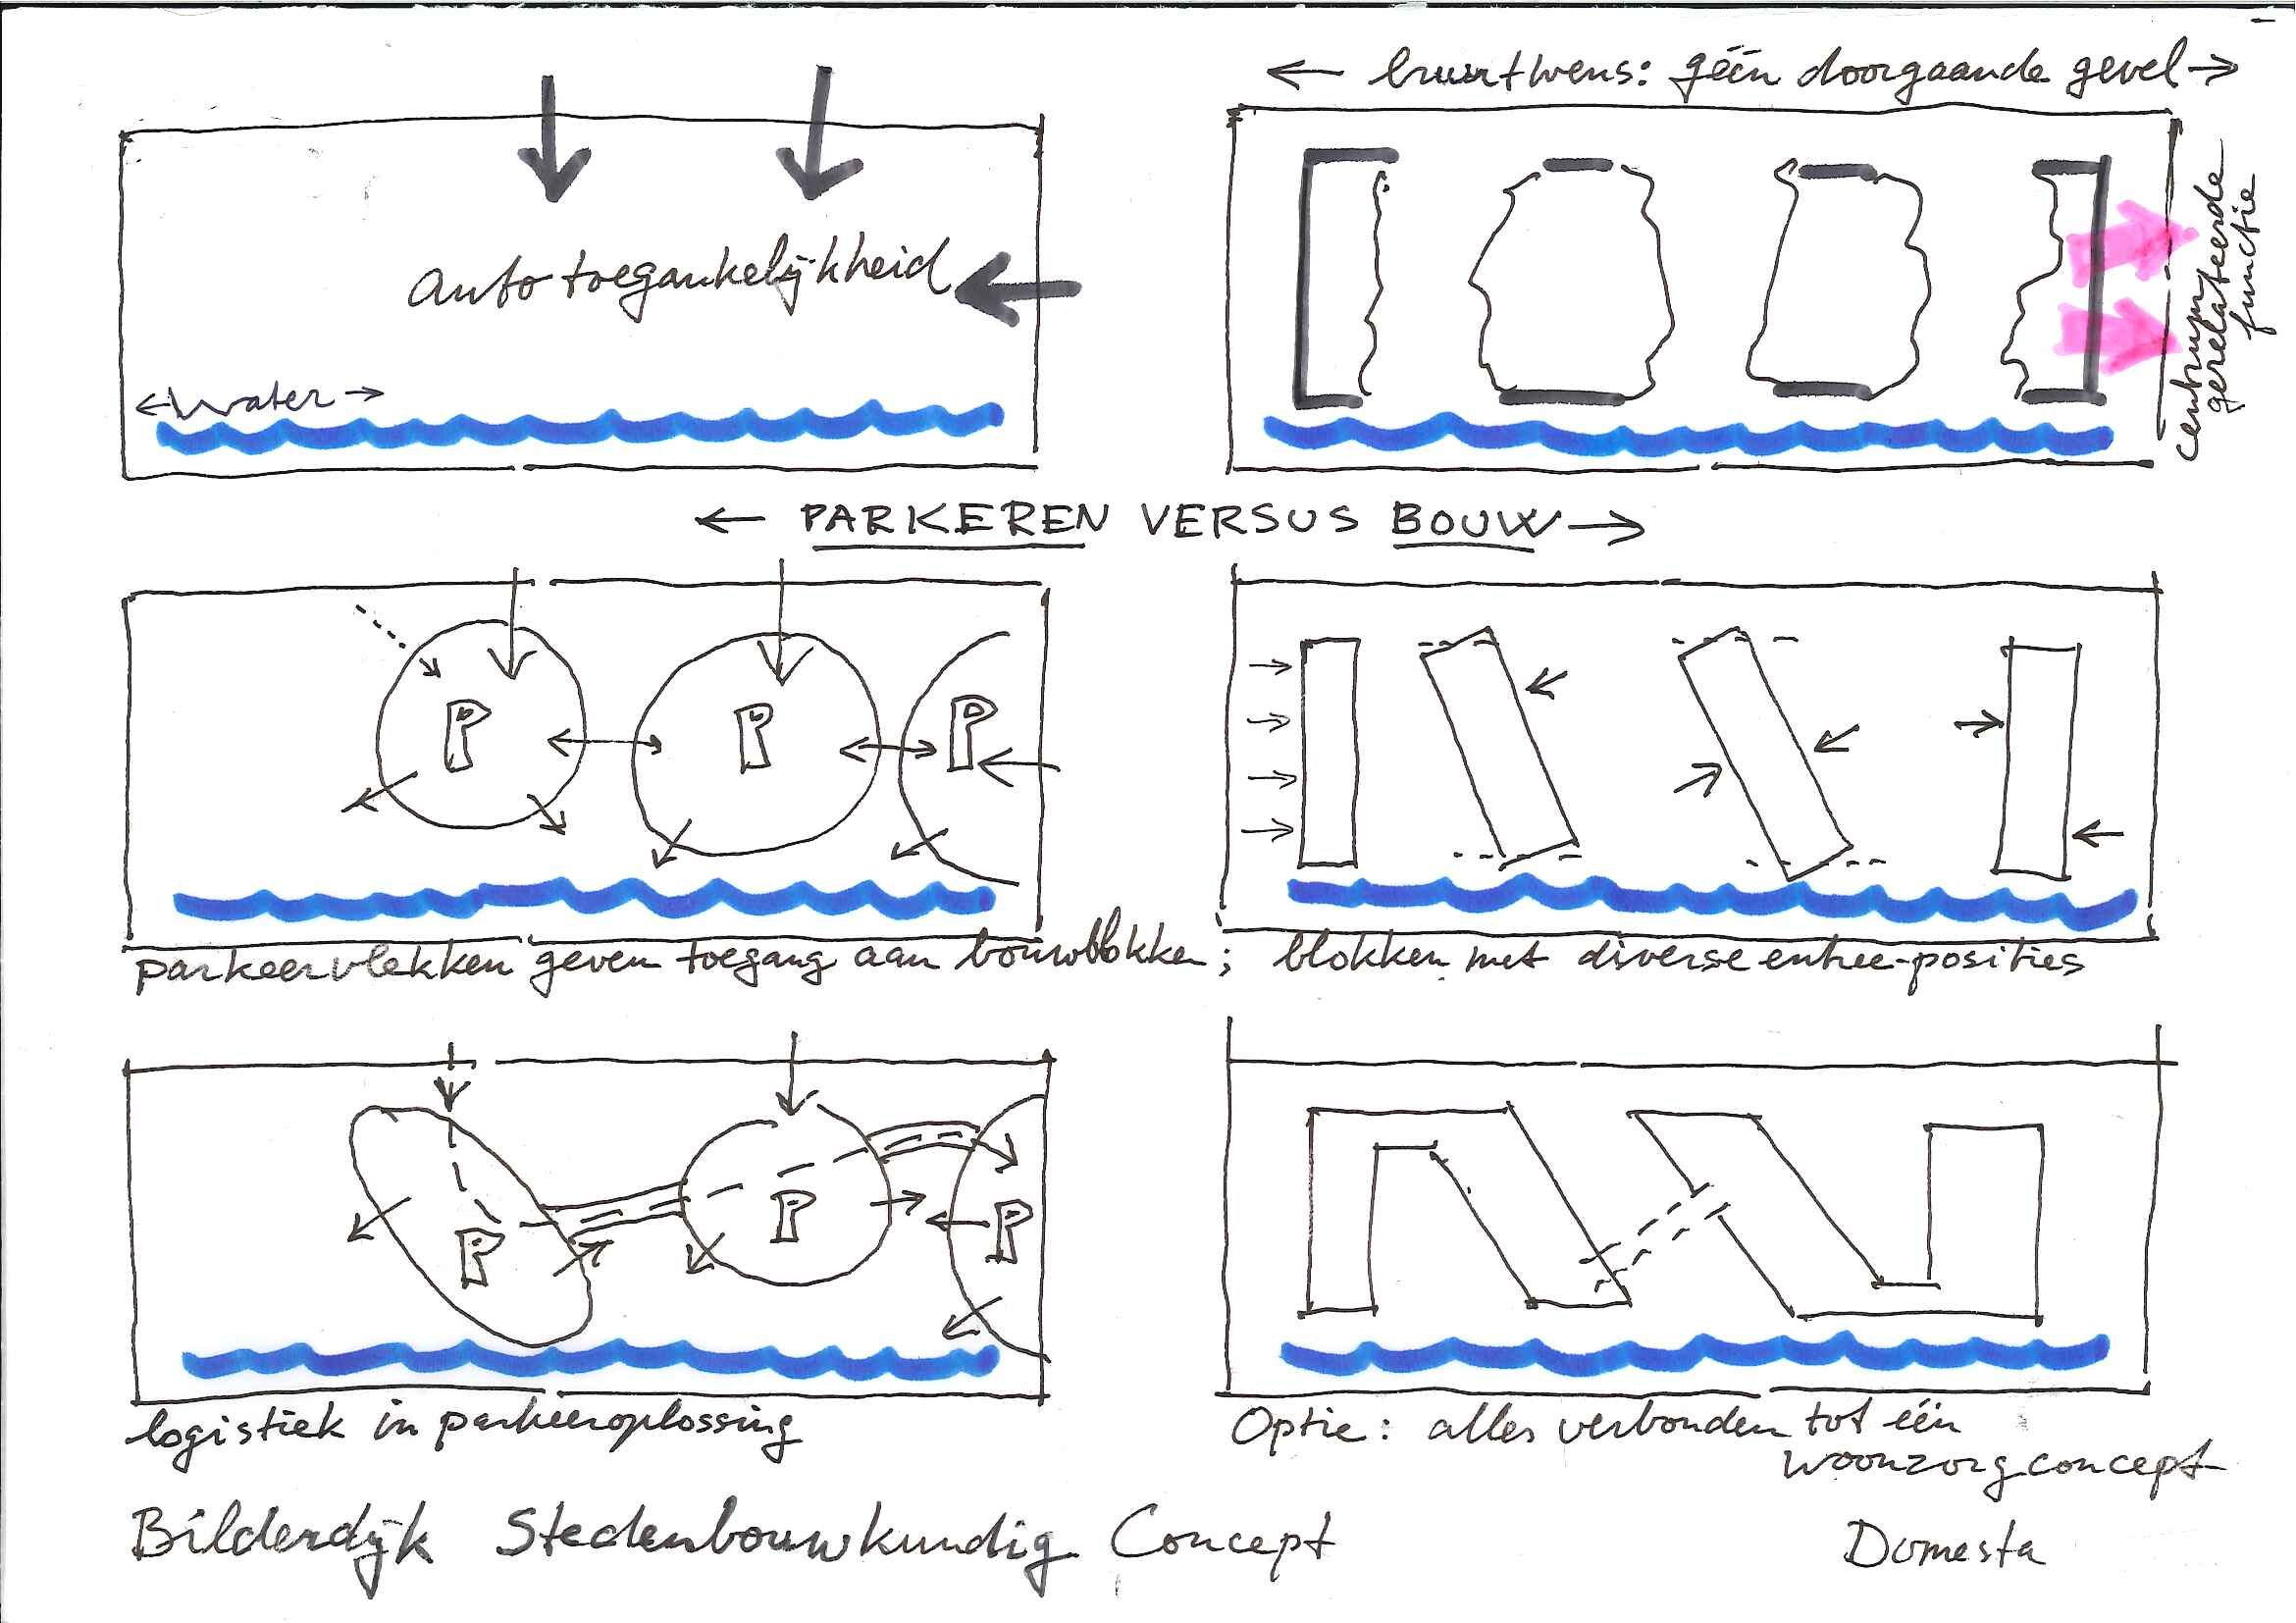 ← buurtwens: géén doorgaande gevel →
auto toegankelijkheid
← Water →
centrum
gerelateerde
functie
← PARKEREN VERSUS BOUW →
P
P
P
parkeervlekken geven toegang aan bouwblokken; blokken met diverse entree-posities
P
P
P
logistiek in parkeeroplossing
Optie: alles verbonden tot één
woonzorgconcept
Bilderdijk Stedenbouwkundig Concept
Domesta